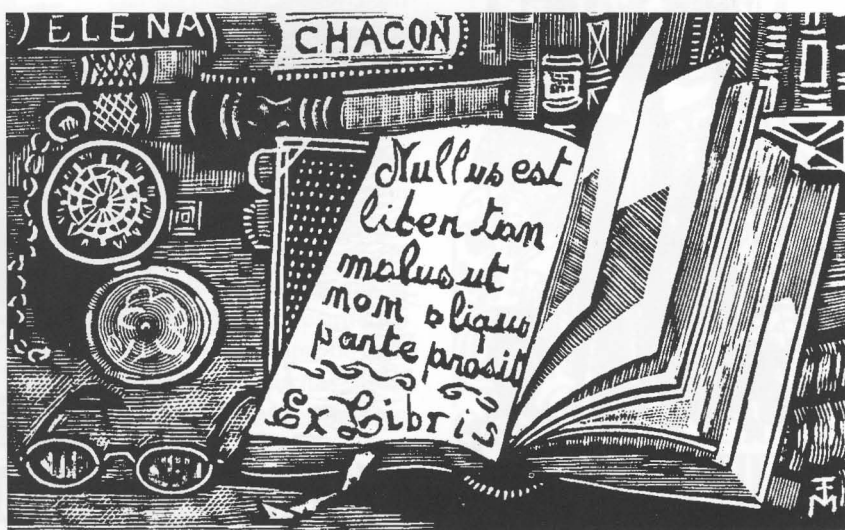 ELENA
CHACON
Nullus est
liber tan
malus ut
nom aliquo
parte prosit
Ex Libris